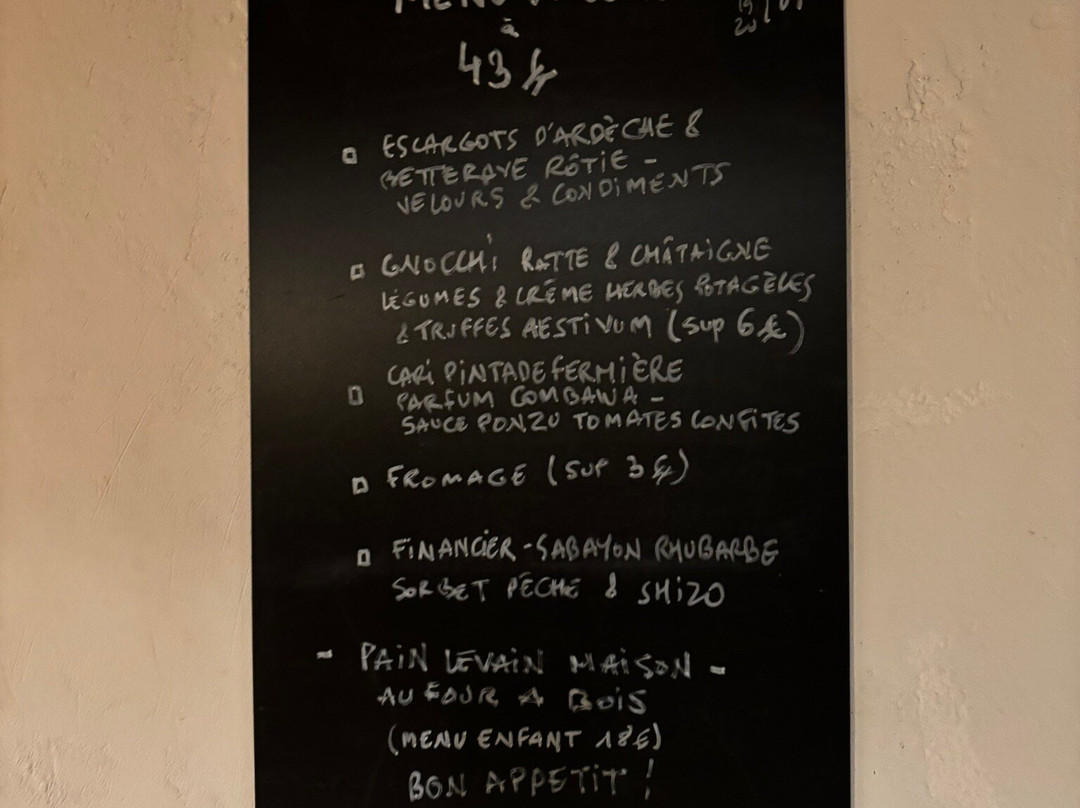 MENU
à
43 €
ESCARGOTS D'ARDÈCHE &
BETTERAVE RÔTIE -
VELOURS & CONDIMENTS
GNOCCHI RATTE & CHÂTAIGNE
LÉGUMES & CRÈME HERBES POTAGÈRES
& TRUFFES AESTIVUM (SUP 6 €)
CARI PINTADE FERMIÈRE
PARFUM COMBAWA -
SAUCE PONZU TOMATES CONFITES
FROMAGE (SUP 3 €)
FINANCIER - SABAYON RHUBARBE
SORBET PÊCHE & SHIZO
- PAIN LEVAIN MAISON -
AU FOUR A BOIS
(MENU ENFANT 18€)
BON APPETIT !